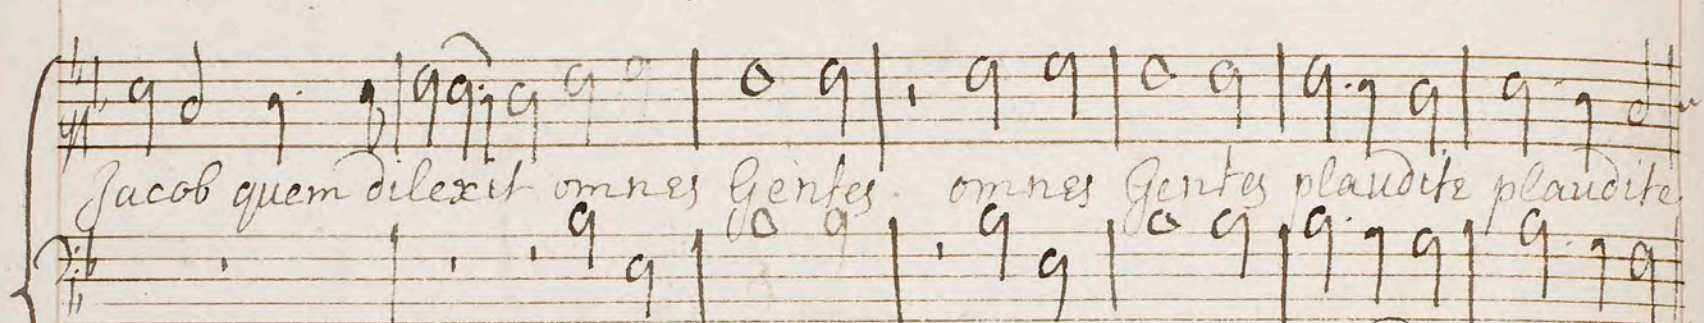 Jacob quem dilexit omnes Gentes omnes Gentes plaudite plaudite